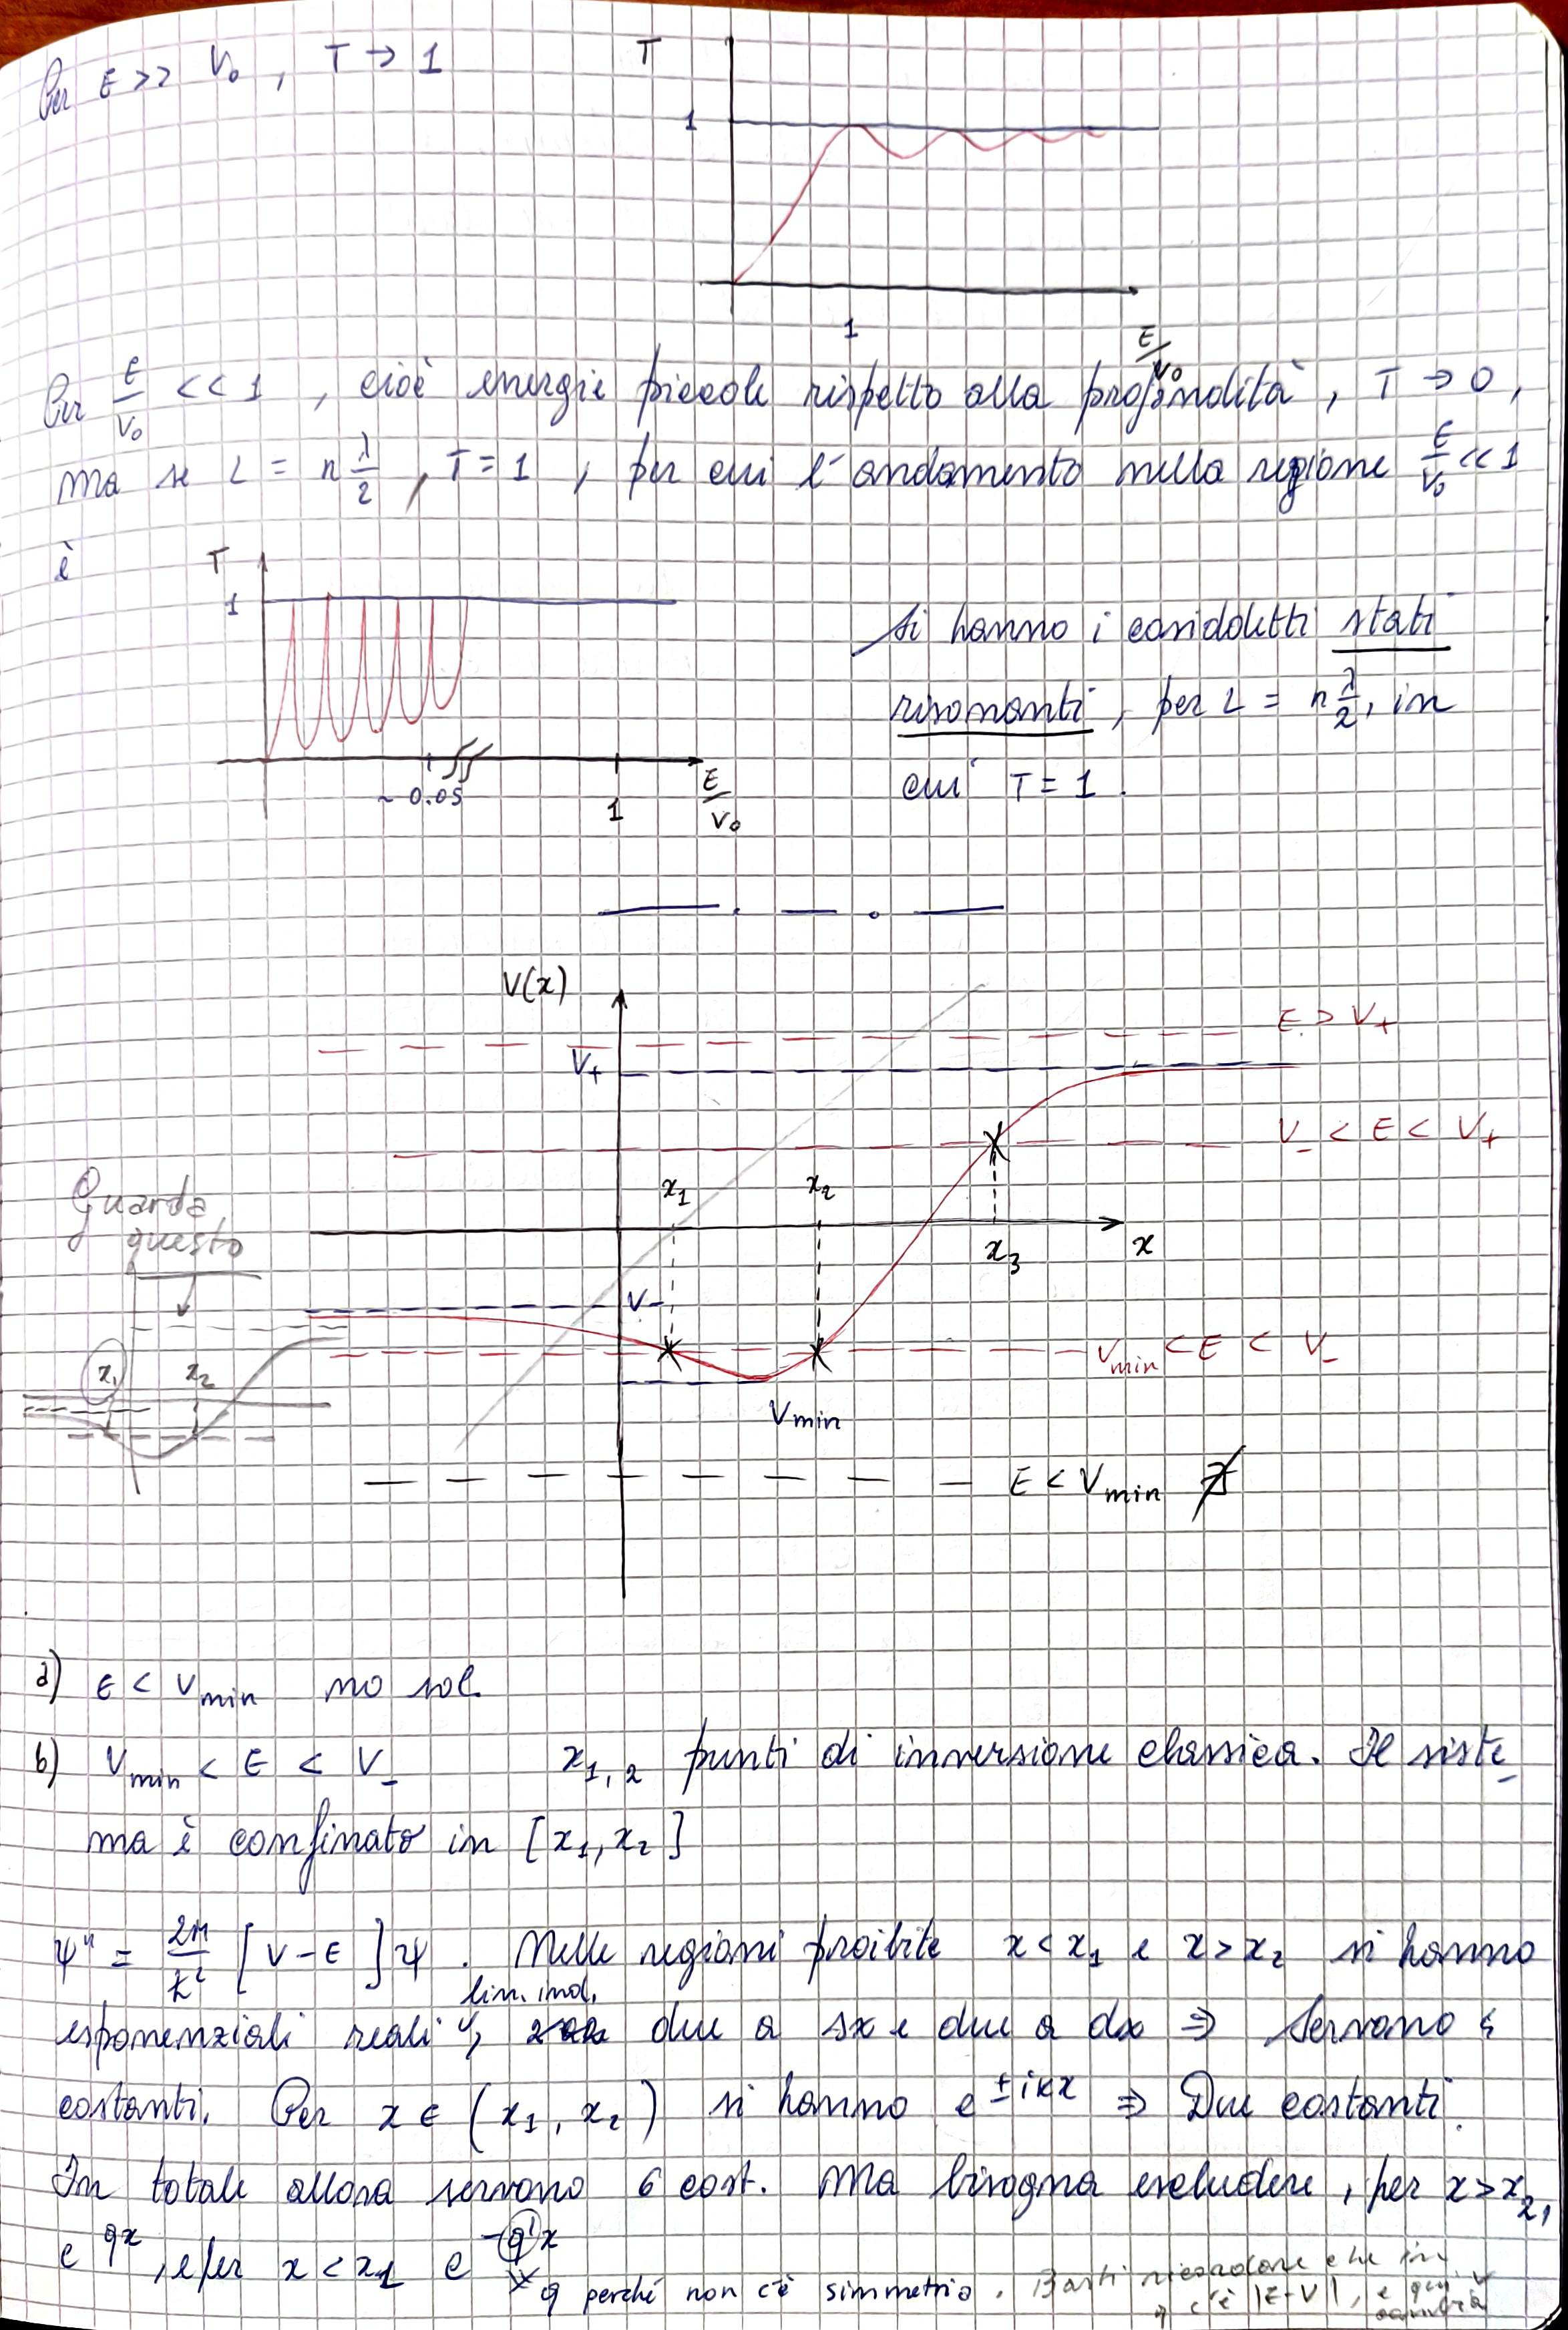 Per E >> V₀ , T → 1
T
1
1
E/V₀
Per E/V₀ << 1 , cioè energie piccole rispetto alla profondità, T → 0,
ma se L = n λ/2 , T = 1 , per cui l'andamento nella regione E/V₀ << 1
è
T
1
~ 0.05
1
E/V₀
Si hanno i cosiddetti stati
risonanti, per L = n λ/2, in
cui T = 1.
V(x)
E > V₊
V₊
V₋ < E < V₊
x₁
x₂
Guarda
questo
x₃
x
V₋
Vmin < E < V₋
x₁
x₂
Vmin
E < Vmin ∄
a) E < Vmin no sol.
b) Vmin < E < V₋ x₁,₂ punti di inversione classica. Il siste-
ma è confinato in [x₁, x₂]
ψ'' = 2M/ħ² [V − E] ψ . Nelle regioni proibite x < x₁ e x > x₂ si hanno
lin. ind.
esponenziali reali, due a sx e due a dx ⇒ Servono 4
costanti. Per x ∈ (x₁, x₂) si hanno e^±ikx ⇒ Due costanti.
In totale allora servono 6 cost. Ma bisogna escludere, per x > x₂,
e^qx, e per x < x₁ e^−q'x
≠ q perché non c'è simmetria. Basti ricordare che in
q c'è |E−V|, e qui V
cambia